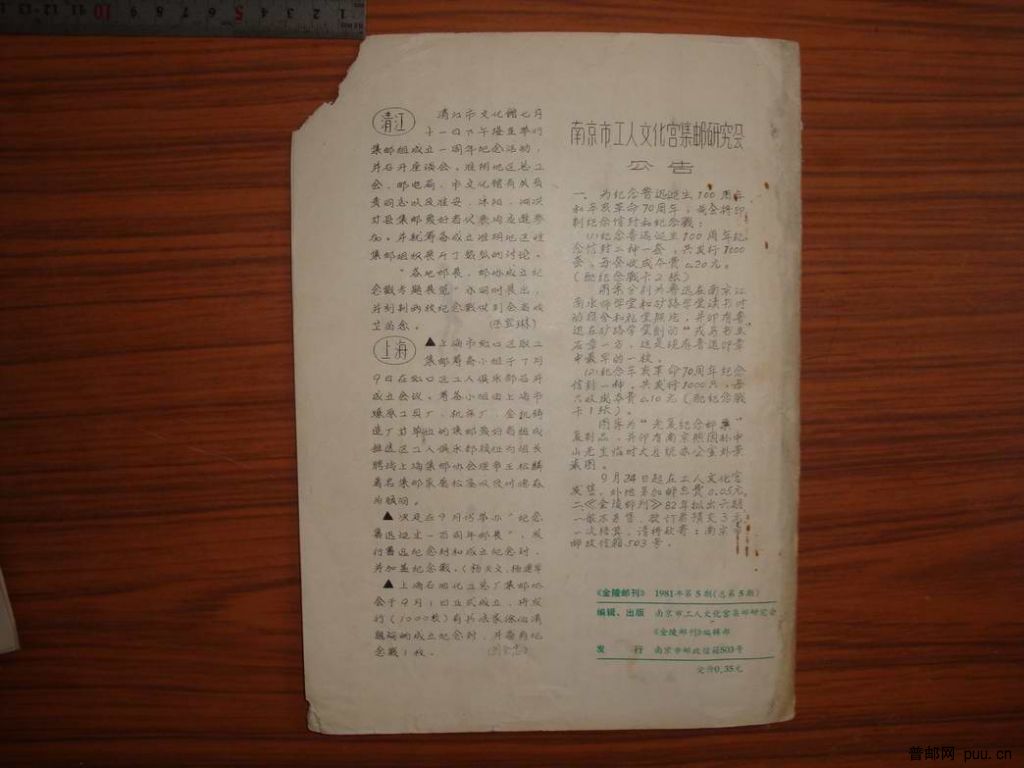 清江
清江市文化馆七月
十一日下午隆重举行
集邮组成立一周年纪念活动，
并召开座谈会。淮阴地区总工
会、邮电局、市文化馆有关负
责同志以及淮安、沭阳、泗洪
对县集邮爱好者代表均应邀参
加。并就筹备成立淮阴地区性
集邮组织展开了热烈的讨论。
“各地邮展、邮协成立纪
念戳专题展览”亦同时展出，
并刻制两枚纪念戳供到会者收
上海
▲上海市虹口区职工
集邮筹备小组于7月
9日在虹口区工人俱乐部召开
成立会议。筹备小组由上海市
造厂等单位的集邮爱好者组成
为顾问。
▲决定在9月份举办“纪念
鲁迅诞生一百周年邮展”，发
行鲁迅纪念封和成立纪念封，
并加盖纪念戳。
▲上海石油化工总厂集邮协
会于9月1日正式成立，将发
行(1000枚)有书法家
题词的成立纪念封，并备有纪
念戳1枚。
南京市工人文化宫集邮研究会
公告
一、为纪念鲁迅诞生100周年
和辛亥革命70周年，我会将印
制纪念信封和纪念戳：
(1)纪念鲁迅诞生100周年纪
念信封二种一套，共发行1000
套，每套收成本费0.20元。
(配纪念戳卡2张)
图案分别为鲁迅在南京江
南水师学堂和矿路学堂读书时
的宿舍和礼堂旧址，并印有鲁
迅在矿路学堂刻的“戎马书生”
石章一方，这是现存鲁迅印章
中最早的一枚。
(2)纪念辛亥革命70周年纪念
信封一种，共发行1000只，每
只收成本费0.10元(配纪念戳
卡1张)。
图案为“光复纪念邮票”
复制品，并印有南京熙园孙中
山先生临时大总统办公室外景
素图。
9月24日起在工人文化宫
发售，外地另加邮总费0.05元。
二、《金陵邮刊》82年拟出六期
一般不另售，欲订者预交3元，
一次结算，请将款寄：南京市
邮政信箱503号。
《金陵邮刊》 1981年第5期(总第5期)
编辑、出版 南京市工人文化宫集邮研究会
《金陵邮刊》编辑部
发 行 南京市邮政信箱503号
定价0.35元
普邮网 puu.cn